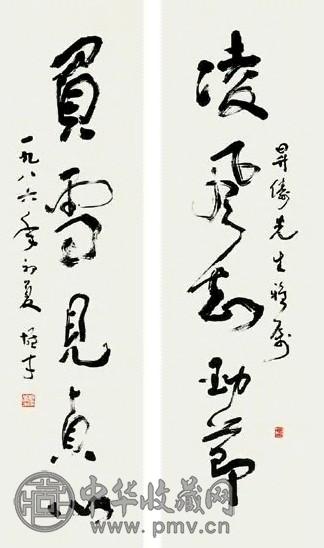 昇儔先生雅屬
凌風知勁節
負雪見貞心
一九八六年初夏
中华收藏网
www.pmv.cn